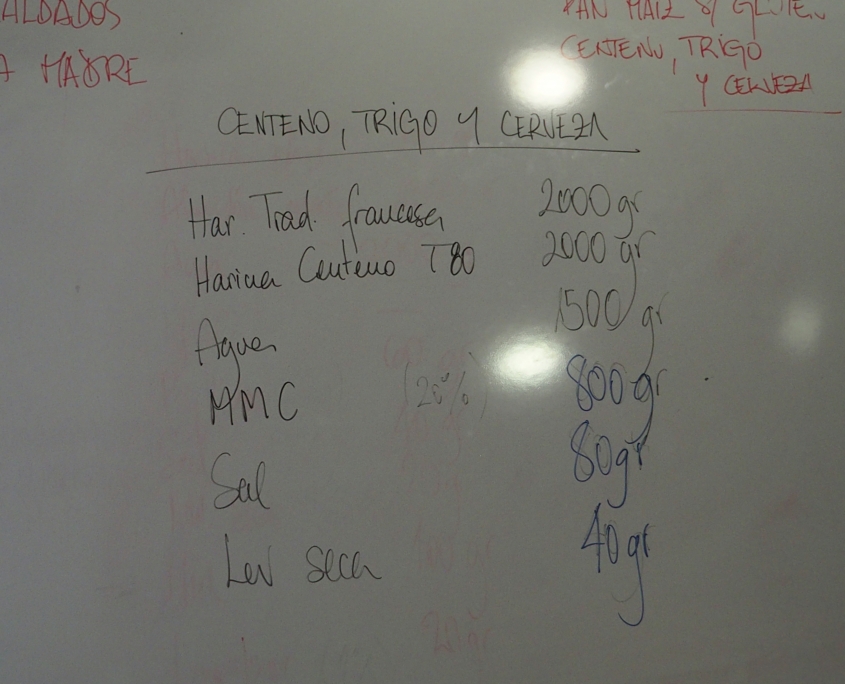 ALDADOS
MADRE
PAN MAIZ S/ GLUTEN
CENTENO, TRIGO
Y CERVEZA
CENTENO, TRIGO Y CERVEZA
Har. Trad. francesa 2000 gr
Harina Centeno T80 2000 gr
Agua 1500 gr
MMC (20%) 800 gr
Sal 80 gr
Lev seca 40 gr